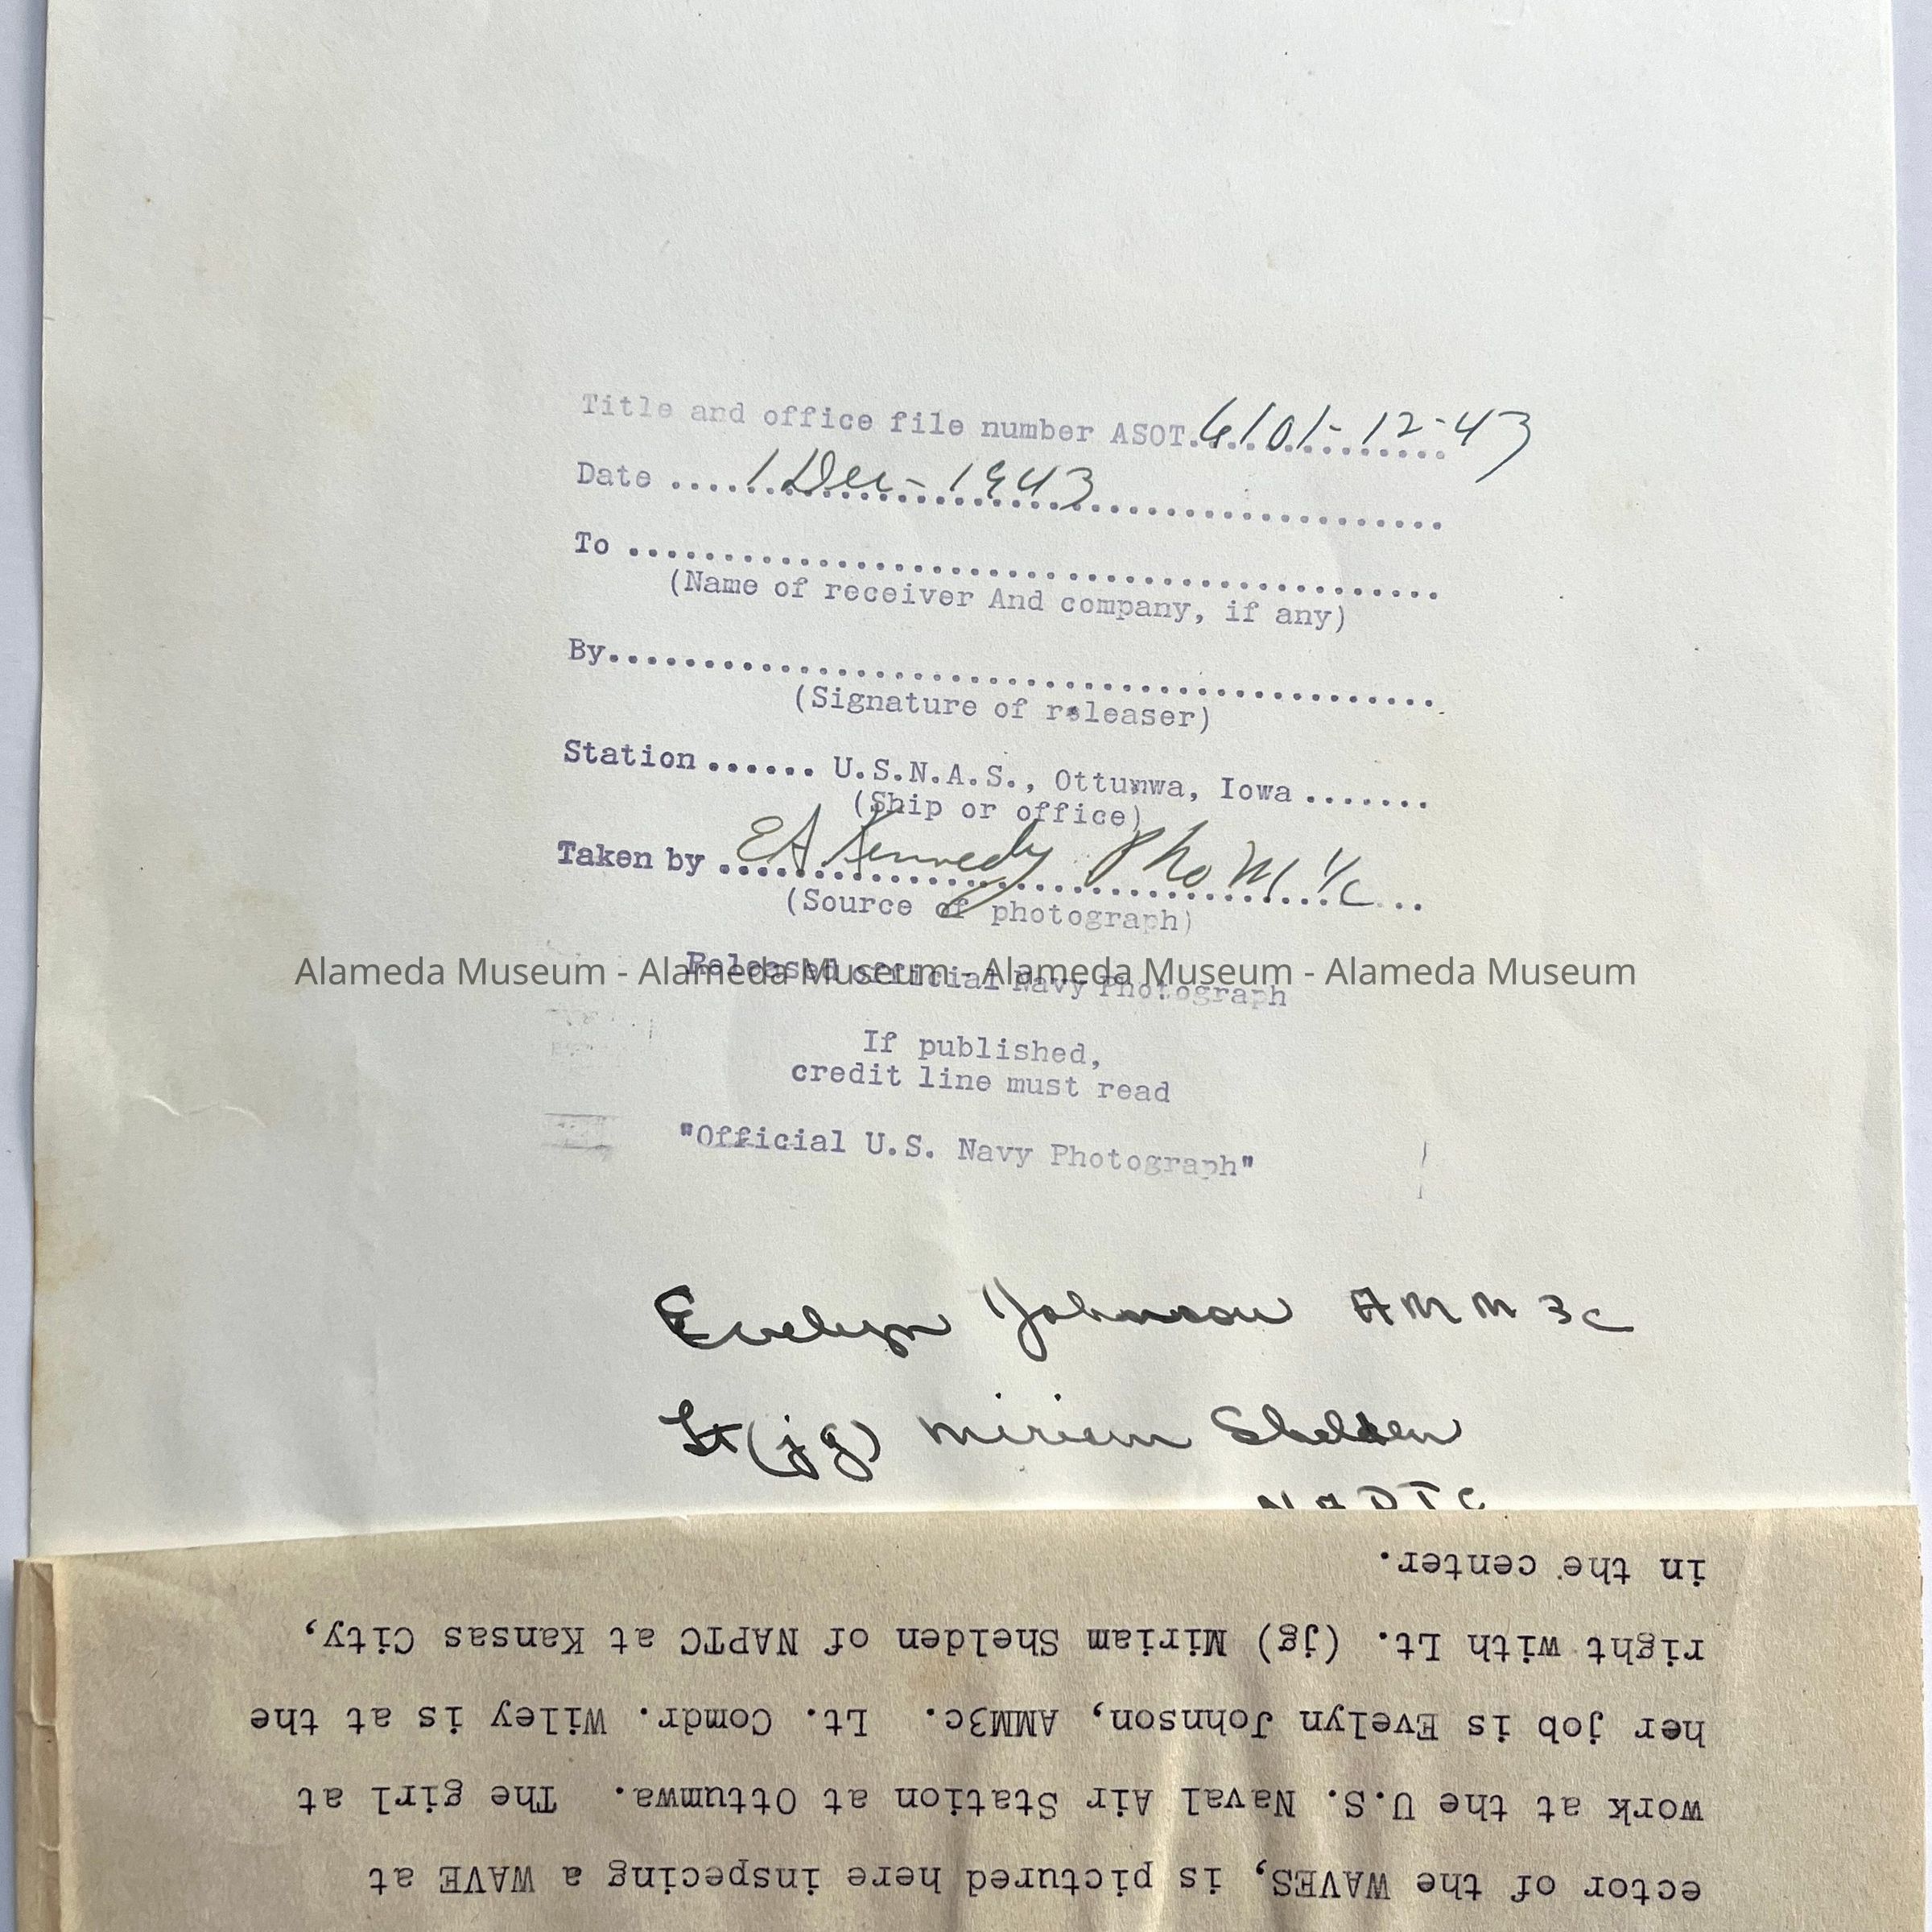 Title and office file number ASOT. 6101-12-43
Date .... 1 Dec - 1943
To ..........................................
(Name of receiver And company, if any)
By...........................................
(Signature of releaser)
Station ...... U.S.N.A.S., Ottumwa, Iowa .......
(Ship or office)
Taken by .... EA Kennedy Pho M 1/c ...
(Source of photograph)
Released official Navy Photograph
Alameda Museum - Alameda Museum - Alameda Museum - Alameda Museum
If published,
credit line must read
"Official U.S. Navy Photograph"
Evelyn Johnson AMM 3c
Lt (jg) Miriam Shelden
ector of the WAVES, is pictured here inspecing a WAVE at
work at the U.S. Naval Air Station at Ottumwa. The girl at
her job is Evelyn Johnson, AMM3c. Lt. Comdr. Wiley is at the
right with Lt. (jg) Miriam Shelden of NAPTC at Kansas City,
in the center.